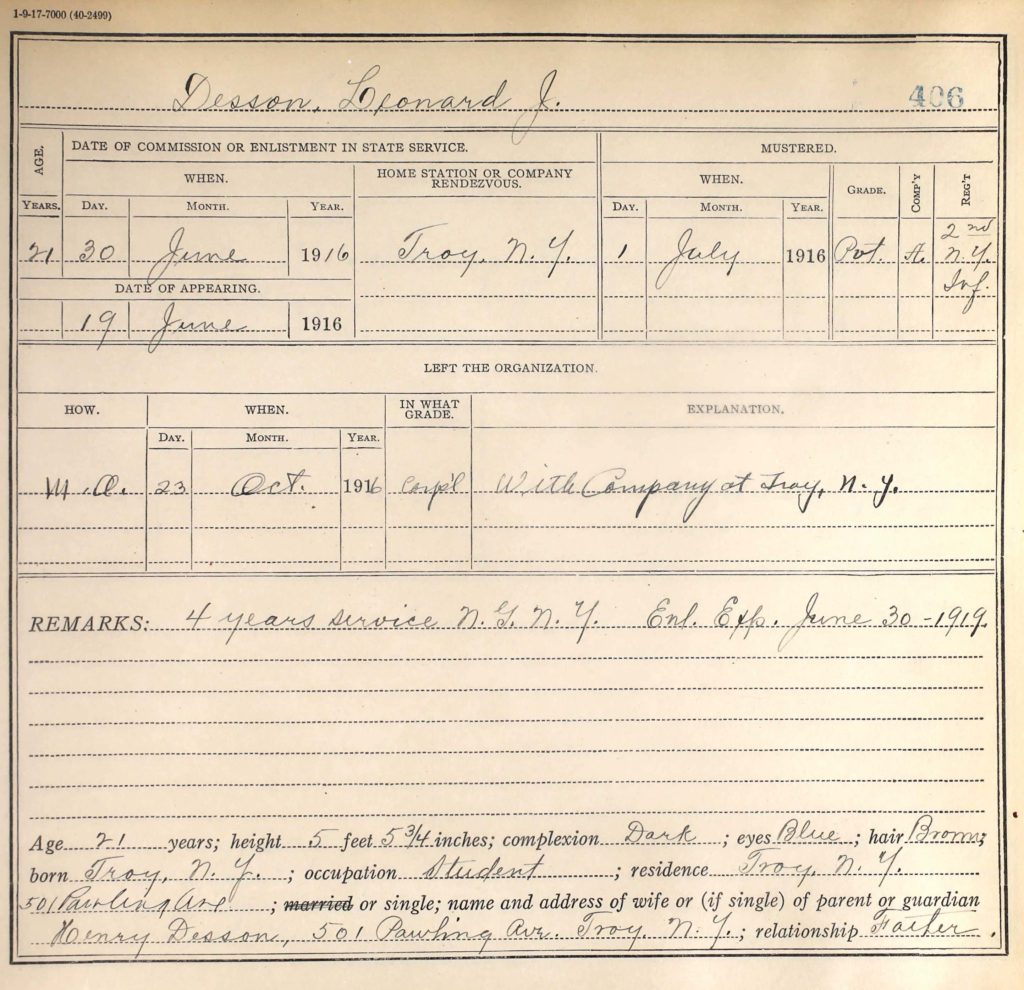 1-9-17-7000 (40-2499)
Desson, Leonard J. 406
AGE. DATE OF COMMISSION OR ENLISTMENT IN STATE SERVICE. MUSTERED.
WHEN. HOME STATION OR COMPANY RENDEZVOUS. WHEN. GRADE. COMP'Y REG'T
YEARS. DAY. MONTH. YEAR. DAY. MONTH. YEAR.
21 30 June 1916 Troy, N.Y. 1 July 1916 Pvt. A. 2nd N.Y. Inf.
DATE OF APPEARING.
19 June 1916
LEFT THE ORGANIZATION.
HOW. WHEN. IN WHAT GRADE. EXPLANATION.
DAY. MONTH. YEAR.
M.O. 23 Oct. 1916 Corp'l With Company at Troy, N.Y.
REMARKS: 4 years service N.G.N.Y. Enl. Exp. June 30-1919.
Age 21 years; height 5 feet 5 3/4 inches; complexion Dark; eyes Blue; hair Brown;
born Troy, N.Y.; occupation Student; residence Troy, N.Y.
501 Pawling Ave; married or single; name and address of wife or (if single) of parent or guardian
Henry Desson, 501 Pawling Ave. Troy, N.Y.; relationship Father.